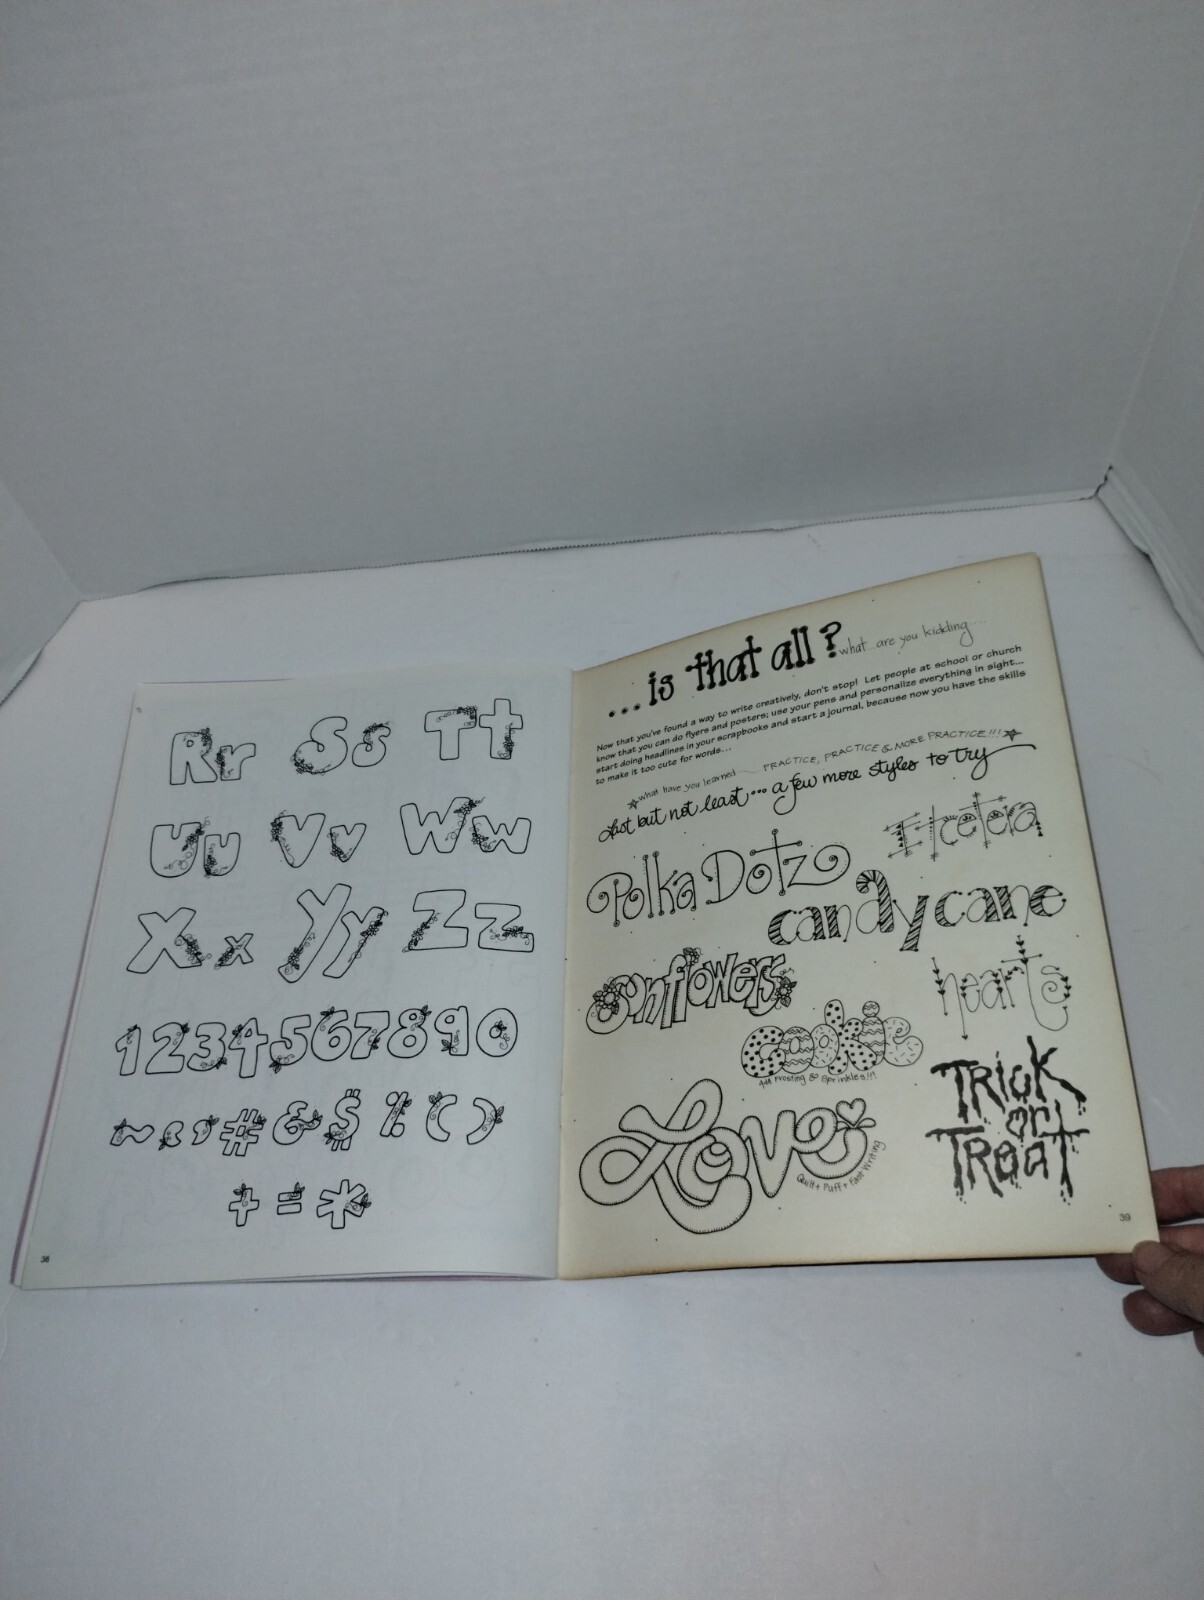 Rr Ss Tt
Uu Vv Ww
Xx Yy Zz
1234567890
~ , , # & $ % ( )
+ = *
38
...is that all? what are you kidding....
Now that you've found a way to write creatively, don't stop! Let people at school or church
know that you can do flyers and posters; use your pens and personalize everything in sight...
start doing headlines in your scrapbooks and start a journal, because now you have the skills
to make it too cute for words...
what have you learned ~ PRACTICE, PRACTICE & MORE PRACTICE!!!
Last but not least... a few more styles to try
Etcetera
Polka Dotz
candycane
sunflowers
hearts
Cookie
Add Frosting & Sprinkles!!!
Trick
or
Treat
Love
Quilt + Puff + Fast Writing
39